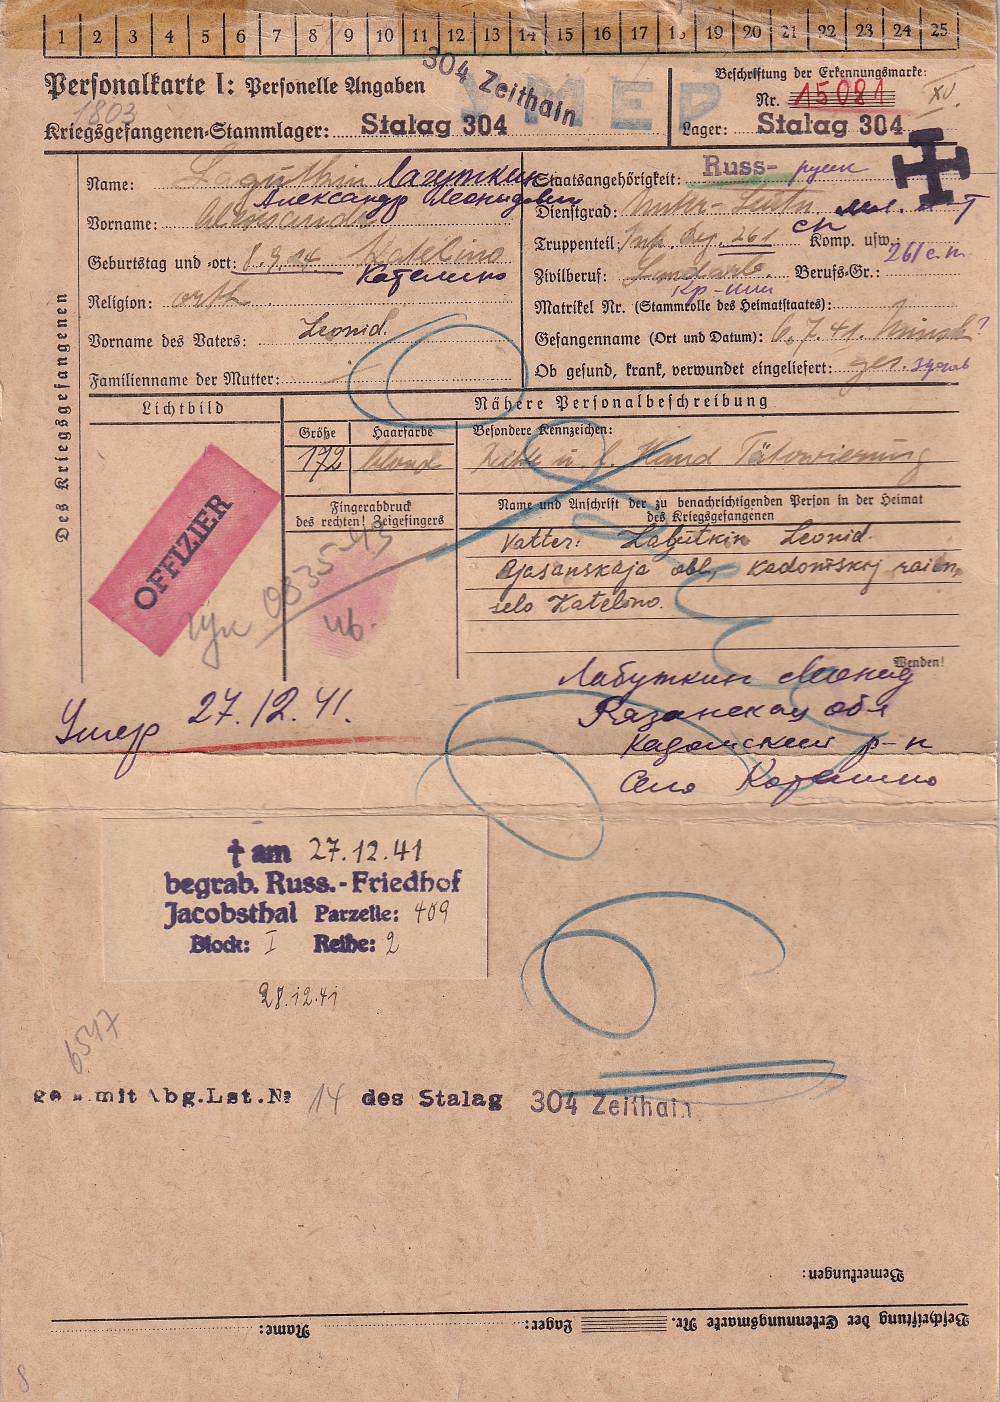 1 2 3 4 5 6 7 8 9 10 11 12 13 14 15 16 17 18 19 20 21 22 23 24 25
Personalkarte I: Personelle Angaben
304 Zeithain
УМЕР
Beschriftung der Erkennungsmarke:
Nr. 15081 XV.
1803
Kriegsgefangenen-Stammlager: Stalag 304
Lager: Stalag 304
Des Kriegsgefangenen
Name: Laguthin Лагуткин
Staatsangehörigkeit: Russ- русск
Александр Леонидович
Vorname: Alexander
Dienstgrad: Unter-Leutn. мл. л-т
Truppenteil: Inf. Reg. 261 сп Komp. usw.: 261 с.п.
Geburtstag und -ort: 8.9.14 Katelino
Кателино
Zivilberuf: Landarb. Berufs-Gr.:
кр-нин
Religion: orth.
Matrikel Nr. (Stammrolle des Heimatstaates):
Vorname des Vaters: Leonid.
Gefangennahme (Ort und Datum): 6.7.41. Minsk ?
Familienname der Mutter:
Ob gesund, krank, verwundet eingeliefert: ges. здоров
Lichtbild
Nähere Personalbeschreibung
Größe Haarfarbe Besondere Kennzeichen:
172 blond u. l. Hand Tätowierung
Fingerabdruck
des rechten! Zeigefingers
Name und Anschrift der zu benachrichtigenden Person in der Heimat
des Kriegsgefangenen
OFFIZIER
0835-43
Vatter: Labutkin Leonid.
Rjasanskaja obl, Kadomskij raion,
selo Katelino.
Wenden!
Лабуткин Леонид
Рязанская обл
Кадомский р-н
Село Кателино
Умер 27.12.41.
† am 27.12.41
begrab. Russ.-Friedhof
Jacobsthal Parzelle: 409
Block: I Reihe: 2
28.12.41
6547
mit Abg.Lst.№ 14 des Stalag 304 Zeithain
Bemerkungen:
Beschriftung der Erkennungsmarke Nr. Lager: Name:
8